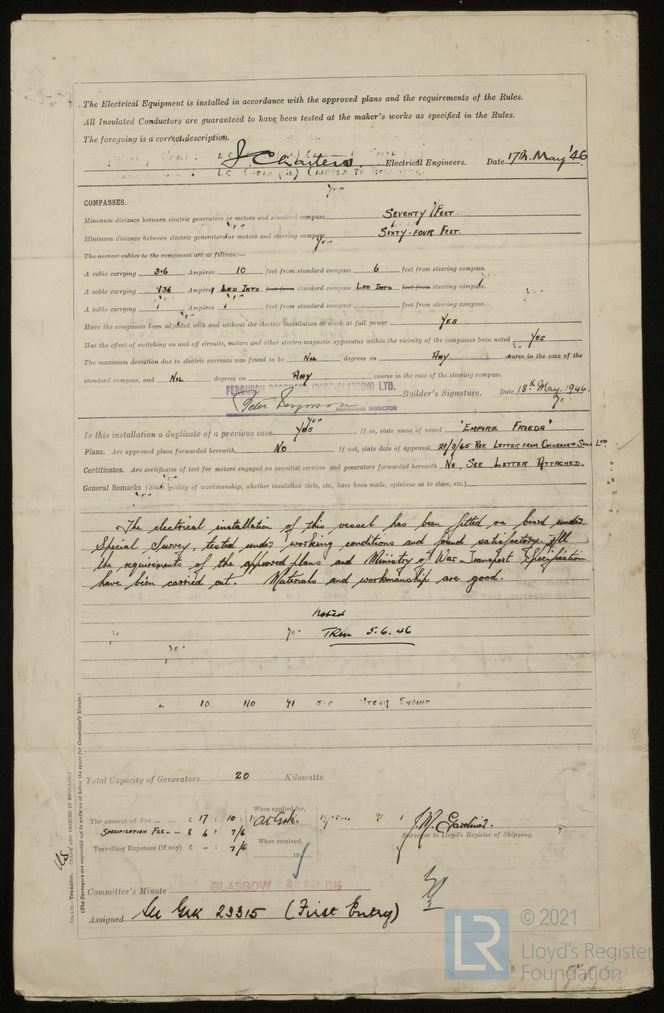 The Electrical Equipment is installed in accordance with the approved plans and the requirements of the Rules.
All Insulated Conductors are guaranteed to have been tested at the maker's works as specified in the Rules.
The foregoing is a correct description.
J Charters Electrical Engineers. Date 17th. May '46
COMPASSES.
Minimum distance between electric generators or motors and standard compass SEVENTY FEET.
Minimum distance between electric generators or motors and steering compass SIXTY-FOUR FEET.
The nearest cables to the compasses are as follows:—
A cable carrying 3.6 Ampères 10 feet from standard compass 6 feet from steering compass.
A cable carrying .136 Ampères LED INTO feet from standard compass LED INTO feet from steering compass.
A cable carrying Ampères feet from standard compass feet from steering compass.
Have the compasses been adjusted with and without the electric installation at work at full power YES
Has the effect of switching on and off circuits, motors and other electro-magnetic apparatus within the vicinity of the compasses been noted YES
The maximum deviation due to electric currents was found to be NIL degrees on ANY course in the case of the
standard compass, and NIL degrees on ANY course in the case of the steering compass.
FERGUSON BROTHERS (PORT-GLASGOW) LTD.
Peter Ferguson Builder's Signature. Date 18th May. 1946.
MANAGING DIRECTOR
Is this installation a duplicate of a previous case Yes If so, state name of vessel "EMPIRE FRIEDA"
Plans. Are approved plans forwarded herewith NO If not, state date of approval LETTER FROM SONS LTD.
Certificates. Are certificates of test for motors engaged on essential services and generators forwarded herewith NO. SEE LETTER ATTACHED.
General Remarks (State quality of workmanship, whether insulation tests, etc., have been made, opinions as to class, etc.)
The electrical installation of this vessel has been fitted on board under
Special Survey, tested under working conditions and found satisfactory. All
the requirements of the approved plans and Ministry of War Transport Specification
have been carried out. Materials and workmanship are good.
Noted
5.6.46
10 110 91 STEAM ENGINE
Total Capacity of Generators 20 Kilowatts.
When applied for,
The amount of Fee ... £ 17 : 10 :
SPECIFICATION FEE £ 4 : 7/6
J.M. Gardner.
Surveyor to Lloyd's Register of Shipping.
Travelling Expenses (if any) £ - : 7/6 When received,
19
Committee's Minute GLASGOW MAY 1946
Assigned See GRK 23315 (First Entry)
(The Surveyors are requested not to write on or below the space for Committee's Minute.)
© 2021
LR
Lloyd's Register
Foundation